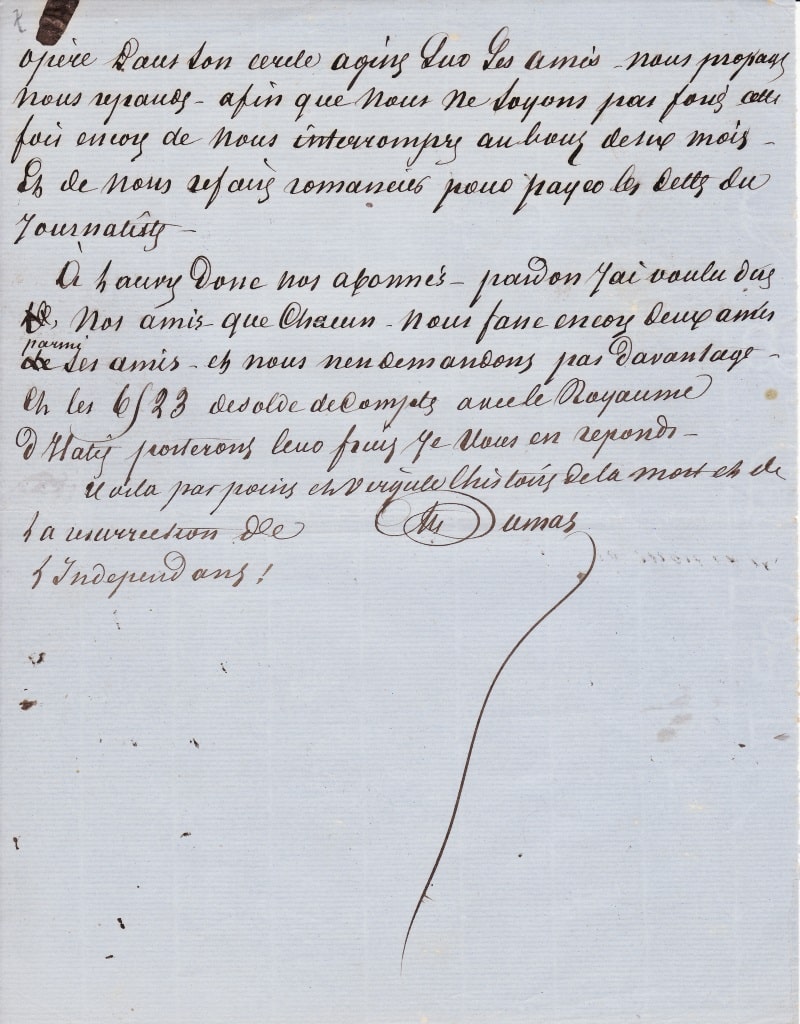 opère dans son cercle agisse sur ses amis - nous propage
nous repande - afin que nous ne soyons pas forcé cette
fois encore de nous interrompre au bout de six mois -
Et de nous refaire romancier pour payer les dettes du
journaliste -
À l'œuvre donc nos abonnés - pardon j'ai voulu dire
nos amis - que chacun - nous fasse encore deux amis
parmi
ses amis - et nous n'en demandons pas davantage -
Et les 6523 de solde de compte avec le Royaume
d'Italie porteront leur fruit je vous en reponds -
Voila par points et virgule l'histoire de la mort et de
la resurrection de
l'Independant!
Dumas